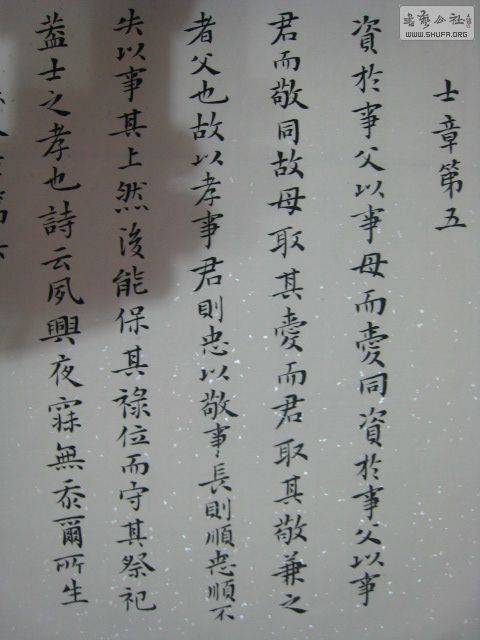 士章第五
資於事父以事母而愛同資於事父以事
君而敬同故母取其愛而君取其敬兼之
者父也故以孝事君則忠以敬事長則順忠順不
失以事其上然後能保其祿位而守其祭祀
蓋士之孝也詩云夙興夜寐無忝爾所生
書藝公社
WWW.SHUFA.ORG